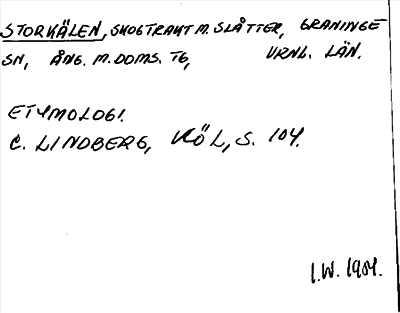 STORKÄLEN, SKOGTRAKT M. SLÅTTER, GRANINGE
SN, ÅNG. M. DOMS. TG, VRNL. LÄN.
ETYMOLOGI.
C. LINDBERG, KÖL, S. 104.
I.W. 1984.